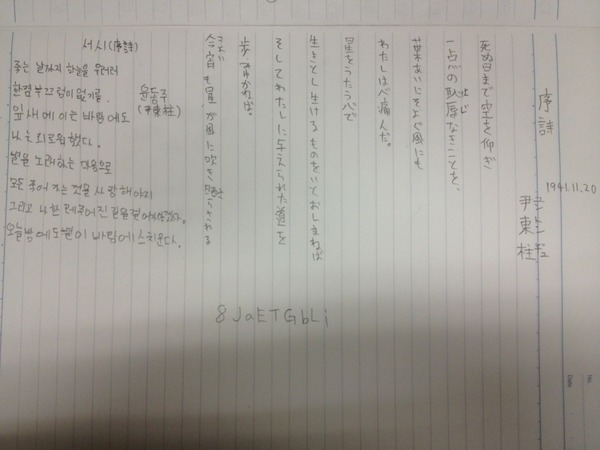 序詩
1941.11.20
尹東柱
死ぬ日まで空を仰ぎ
一点の恥辱なきことを、
はじ
葉あいにそよぐ風にも
わたしは心痛んだ。
星をうたう心で
生きとし生けるものをいとおしまねば
そしてわたしに与えられた道を
歩みゆかねば。
今宵も星が風に吹き
こよい
서시(序詩)
죽는 날까지 하늘을 우러러
한점 부끄럼이 없기를.
윤동주
(尹東柱)
잎새에 이는 바람에도
나는 괴로워했다.
별을 노래하는 마음으로
모든 죽어가는 것을 사랑해야지
그리고 나한테 주어진 길을 걸어가야겠다.
오늘밤에도 별이 바람에 스치운다.
8JaETGbLi
No.
Date